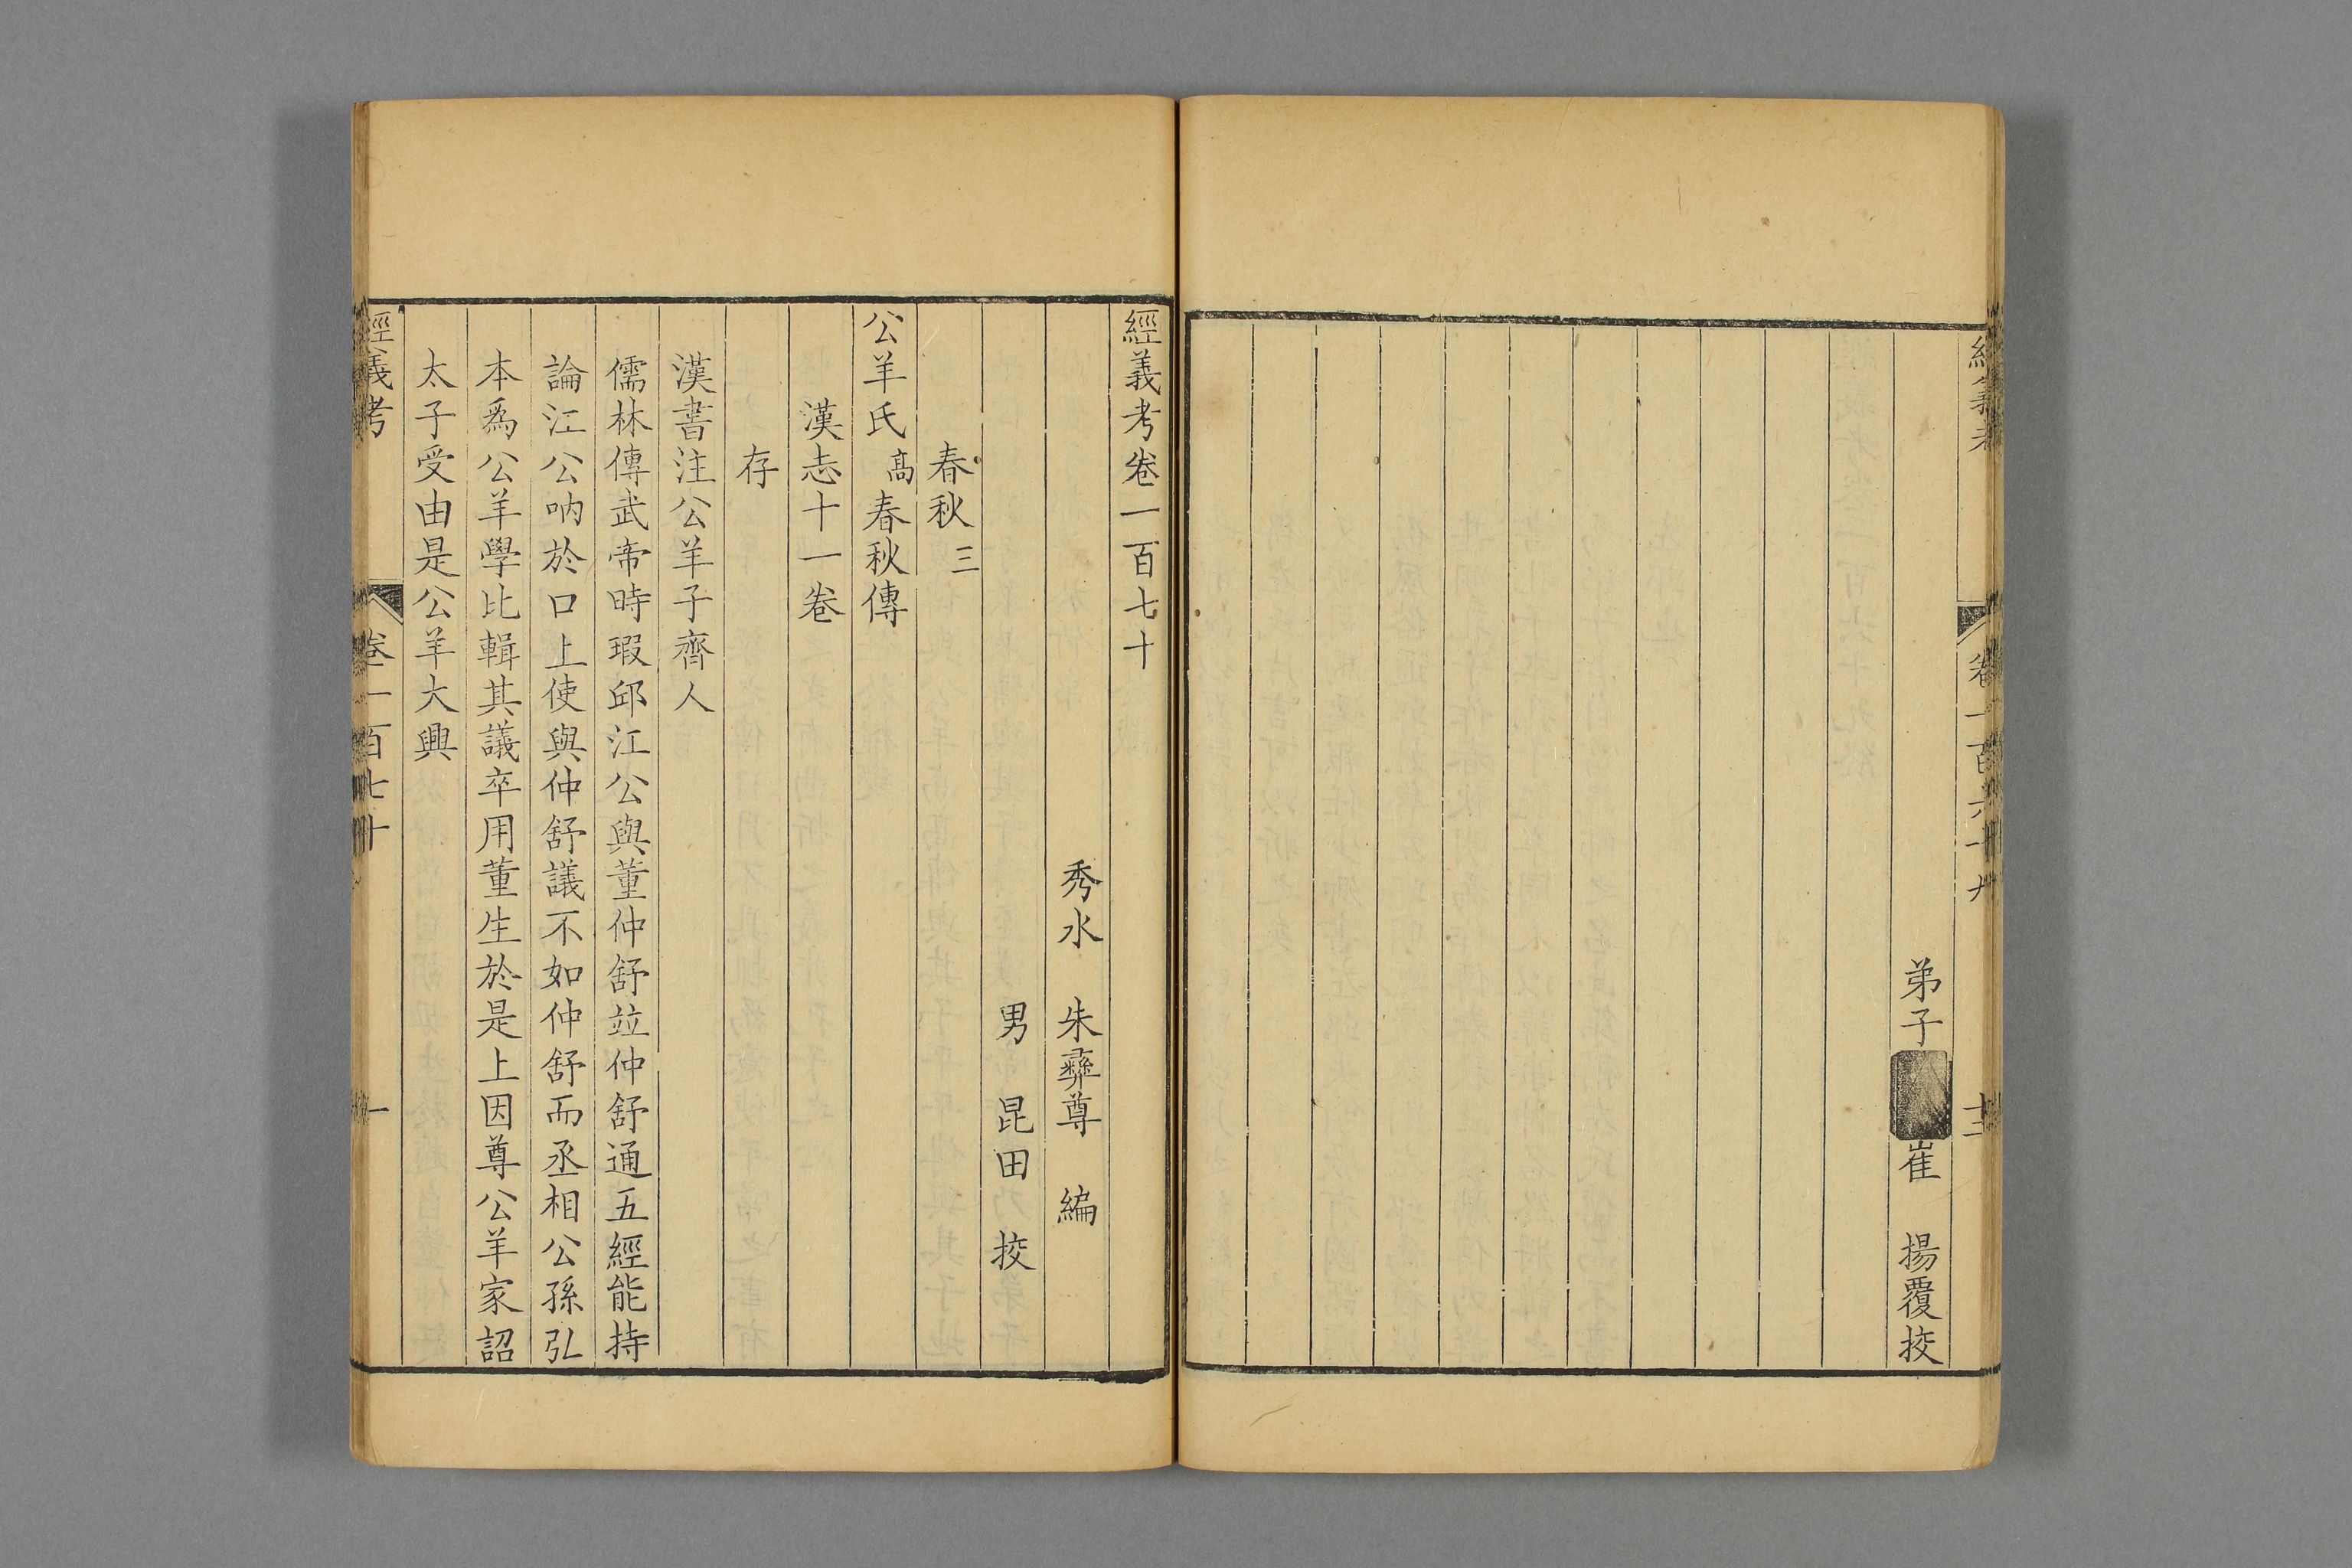 經義考
卷一百六十九
十二
弟子
崔　揚覆挍
經義考卷一百七十
秀水　朱彝尊　編
男　昆田　挍
春秋三
公羊氏高春秋傳
漢志十一卷
存
漢書注公羊子齊人
儒林傳武帝時瑕邱江公與董仲舒竝仲舒通五經能持
論江公吶於口上使與仲舒議不如仲舒而丞相公孫弘
本爲公羊學比輯其議卒用董生於是上因尊公羊家詔
太子受由是公羊大興
經義考
卷一百七十
一